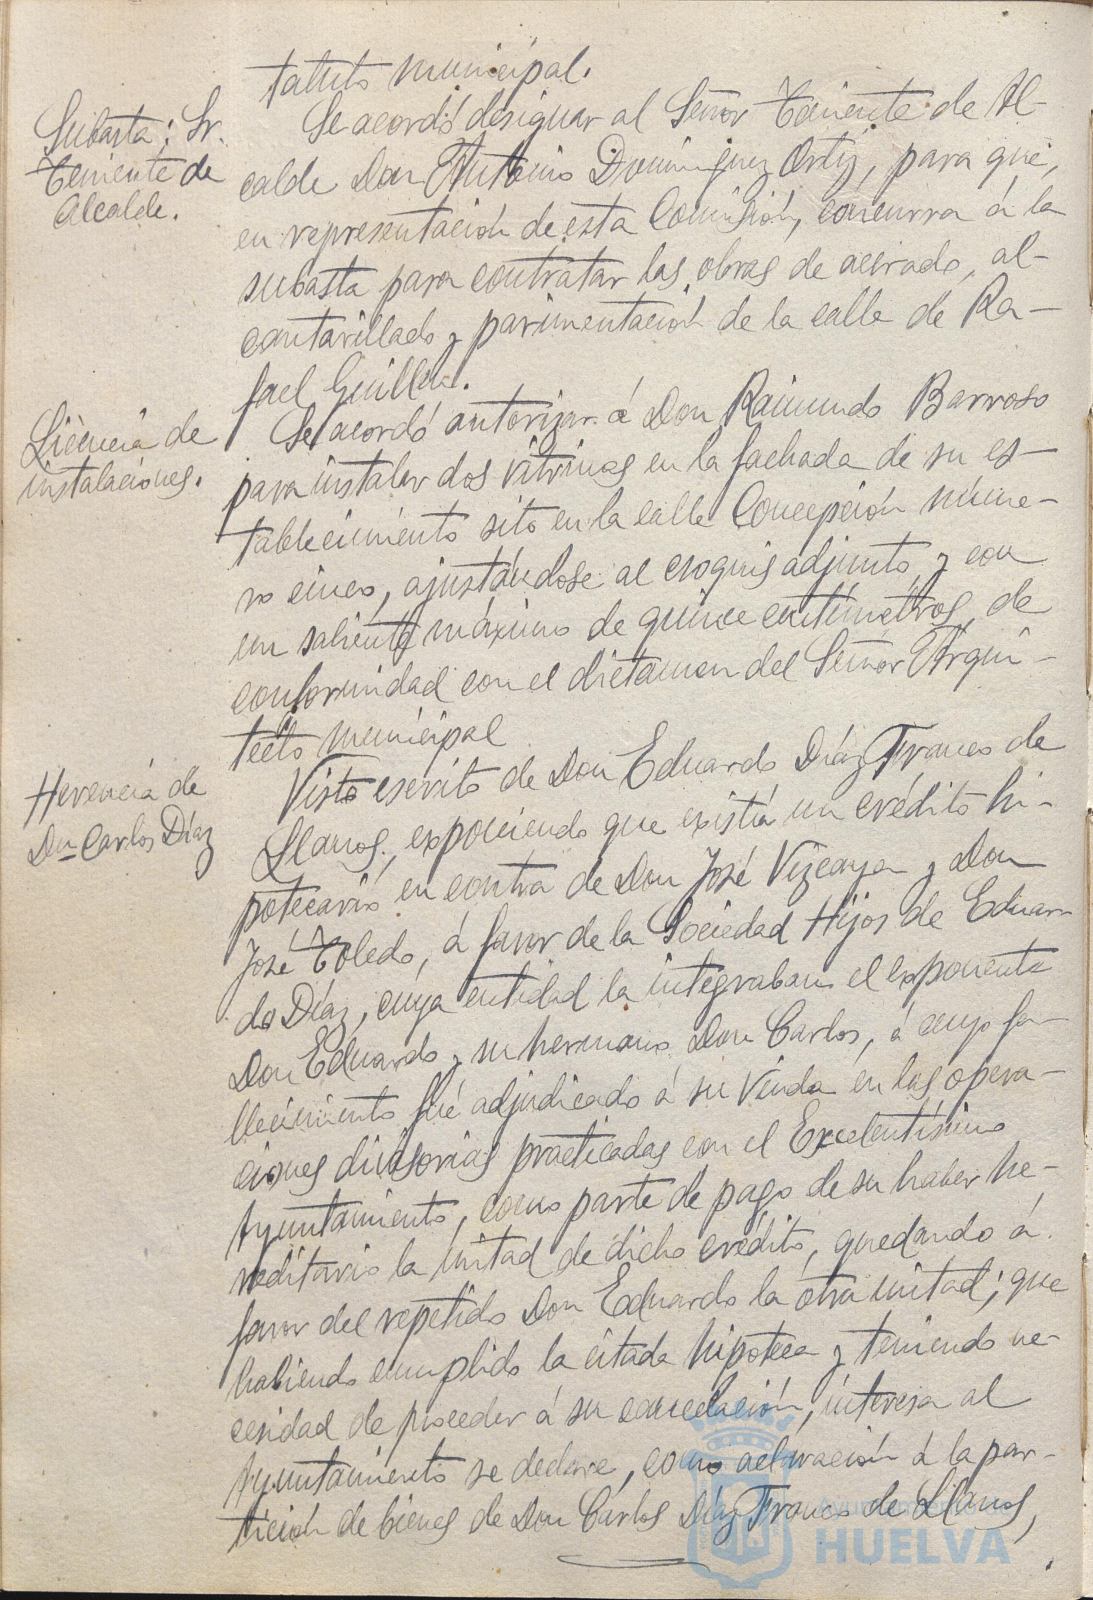 tatuto municipal.
Subasta: Sr.
Teniente de
Alcalde.
Se acordó designar al Señor Teniente de Al-
calde Don Antonio Domínguez Ortiz, para que,
en representación de esta Comisión, concurra á la
subasta para contratar las obras de acerado, al-
cantarillado y pavimentación de la calle de Ra-
fael Guillén.
Licencia de
instalaciones.
Se acordó autorizar á Don Raimundo Barroso
para instalar dos vitrinas en la fachada de su es-
tablecimiento sito en la calle Concepción núme-
ro cinco, ajustándose al croquis adjunto y con
un saliente máximo de quince centímetros, de
conformidad con el dictamen del Señor Arqui-
tecto municipal
Herencia de
Dn Carlos Díaz
Visto escrito de Don Eduardo Díaz Franco de
Llanos, exponiendo que existía un crédito hi-
potecario en contra de Don José Vizcaya y Don
José Toledo, á favor de la Sociedad Hijos de Eduar-
do Díaz, cuya entidad la integraban el exponente
Don Eduardo y su hermano Don Carlos, á cuyo fa-
llecimiento fué adjudicado á su Viuda en las opera-
ciones divisorias practicadas con el Excelentísimo
Ayuntamiento, como parte de pago de su haber he-
reditario la mitad de dicho crédito, quedando á
favor del repetido Don Eduardo la otra mitad; que
habiendo cumplido la citada hipoteca y teniendo ne-
cesidad de proceder á su cancelación, interesa al
Ayuntamiento se declare, como aclaración á la par-
tición de bienes de Don Carlos Díaz Franco de Llanos,
Ayuntamiento de
HUELVA